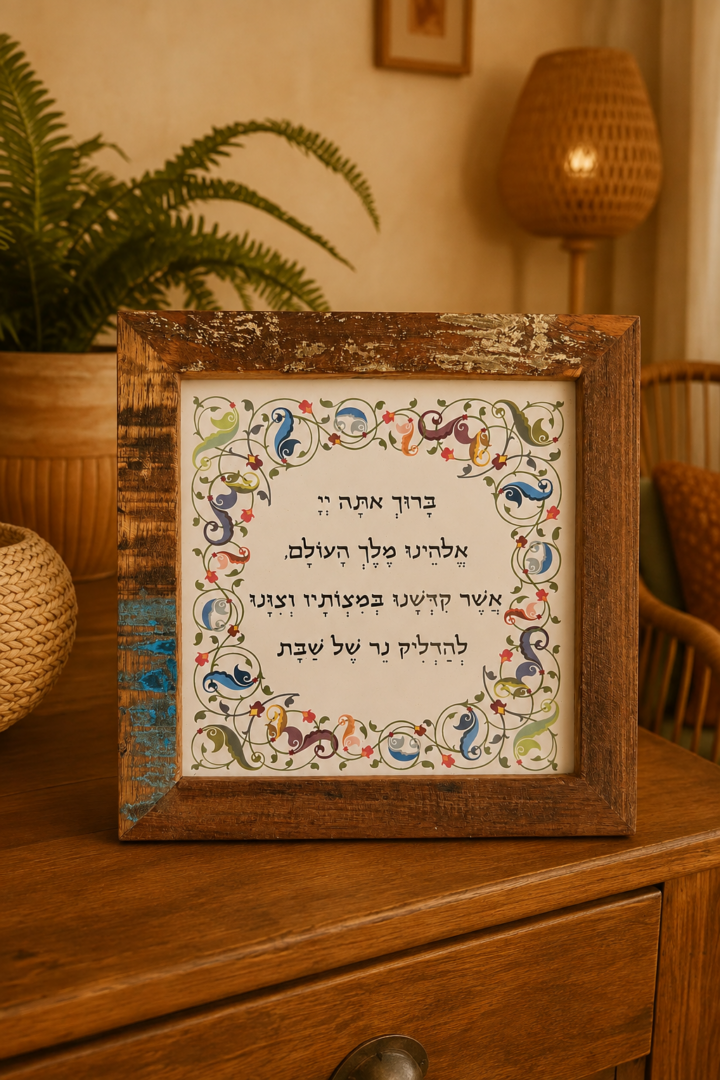 בָּרוּךְ אַתָּה יְיָ
אֱלֹהֵינוּ מֶלֶךְ הָעוֹלָם,
אֲשֶׁר קִדְּשָׁנוּ בְּמִצְוֹתָיו וְצִוָּנוּ
לְהַדְלִיק נֵר שֶׁל שַׁבָּת